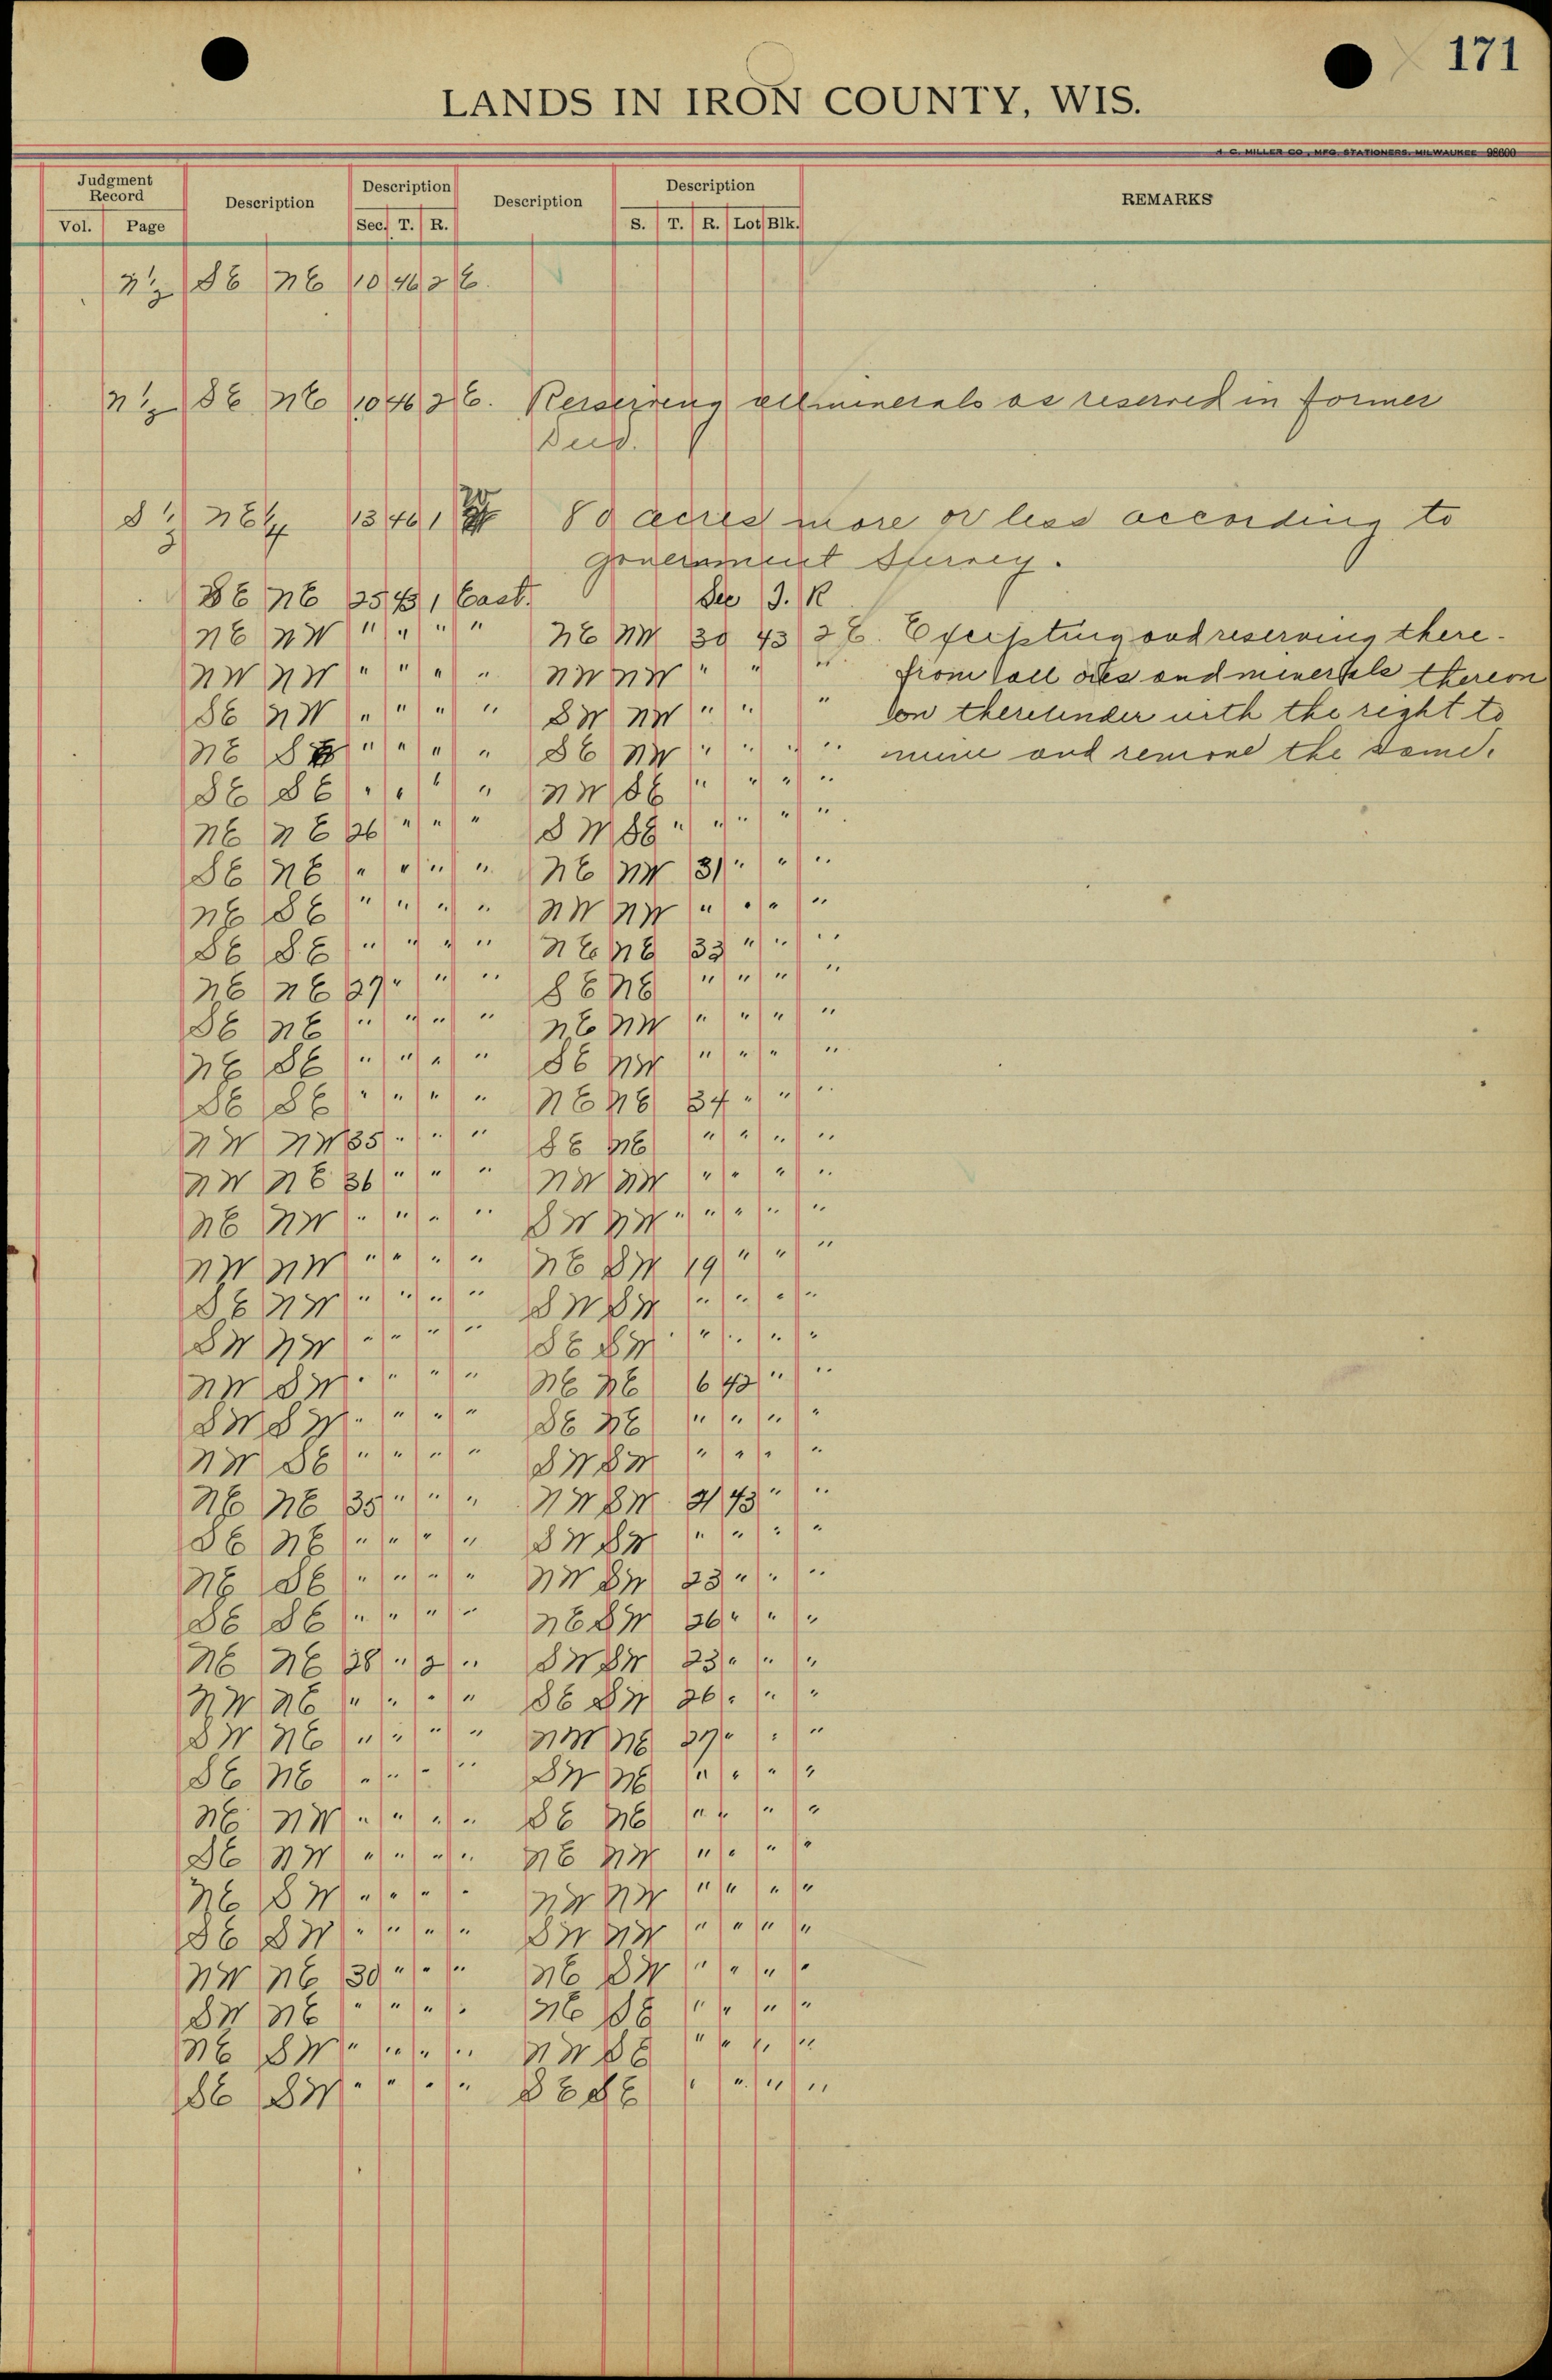 171
LANDS IN IRON COUNTY, WIS.
H. C. MILLER CO., MFG. STATIONERS, MILWAUKEE 98600
Judgment Record Description Description Description Description REMARKS
Vol. Page Sec. T. R. S. T. R. Lot Blk.
N½ SE NE 10 46 2 E.
N½ SE NE 10 46 2 E. Reserving all minerals as reserved in former
Deed.
S½ NE¼ 13 46 1 W 80 acres more or less according to
government Survey.
SE NE 25 43 1 East. Sec T. R
NE NW " " " " NE NW 30 43 2 E. Excepting and reserving there-
NW NW " " " " NW NW " " " from all ores and minerals thereon
SE NW " " " " SW NW " " " or thereunder with the right to
NE SE " " " " SE NW " " " " mine and remove the same.
SE SE " " " " NW SE " " " "
NE NE 26 " " " SW SE " " " " "
SE NE " " " " NE NW 31 " " "
NE SE " " " " NW NW " " " "
SE SE " " " " NE NE 33 " " "
NE NE 27 " " " SE NE " " " "
SE NE " " " " NE NW " " " "
NE SE " " " " SE NW " " " "
SE SE " " " " NE NE 34 " " "
NW NW 35 " " " SE NE " " " "
NW NE 36 " " " NW NW " " " "
NE NW " " " " SW NW " " " " "
NW NW " " " " NE SW 19 " " "
SE NW " " " " SW SW " " " "
SW NW " " " " SE SW " " " " "
NW SW " " " " NE NE 6 42 " "
SW SW " " " " SE NE " " " "
NW SE " " " " SW SW " " " "
NE NE 35 " " " NW SW 21 43 " "
SE NE " " " " SW SW " " " "
NE SE " " " " NW SW 23 " " "
SE SE " " " " NE SW 26 " " "
NE NE 28 " 2 " SW SW 23 " " "
NW NE " " " " SE SW 26 " " "
SW NE " " " " NW NE 27 " " "
SE NE " " " " SW NE " " " "
NE NW " " " " SE NE " " " "
SE NW " " " " NE NW " " " "
NE SW " " " " NW NW " " " "
SE SW " " " " SW NW " " " "
NW NE 30 " " " NE SW " " " "
SW NE " " " " NE SE " " " "
NE SW " " " " NW SE " " " "
SE SW " " " " SE SE " " " "